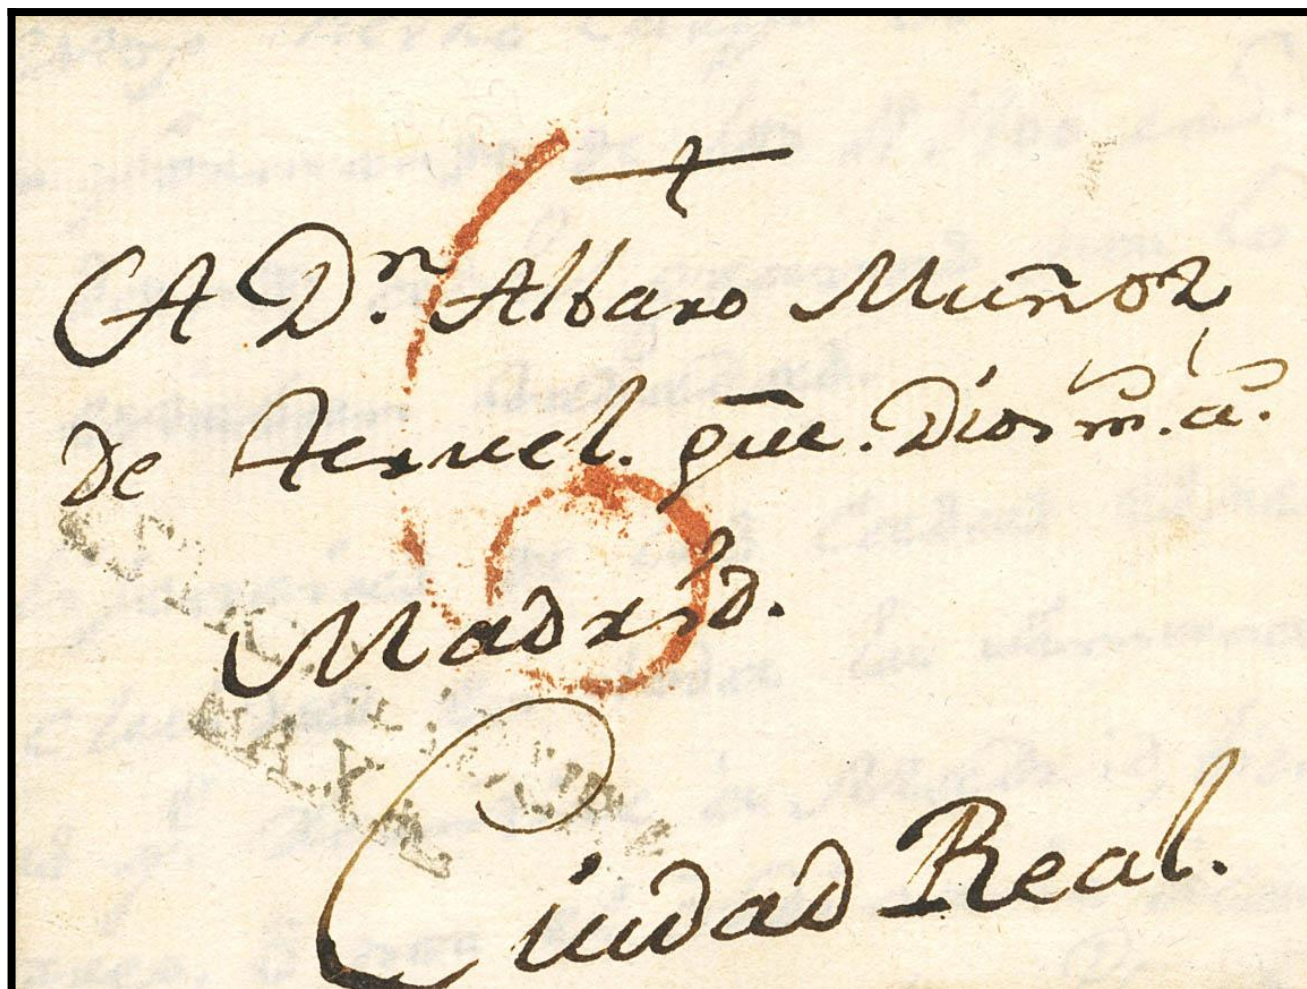 A Dn. Albaro Muñoz
de Teruel. gūe. Dios m. a.
Madrid.
Ciudad Real.